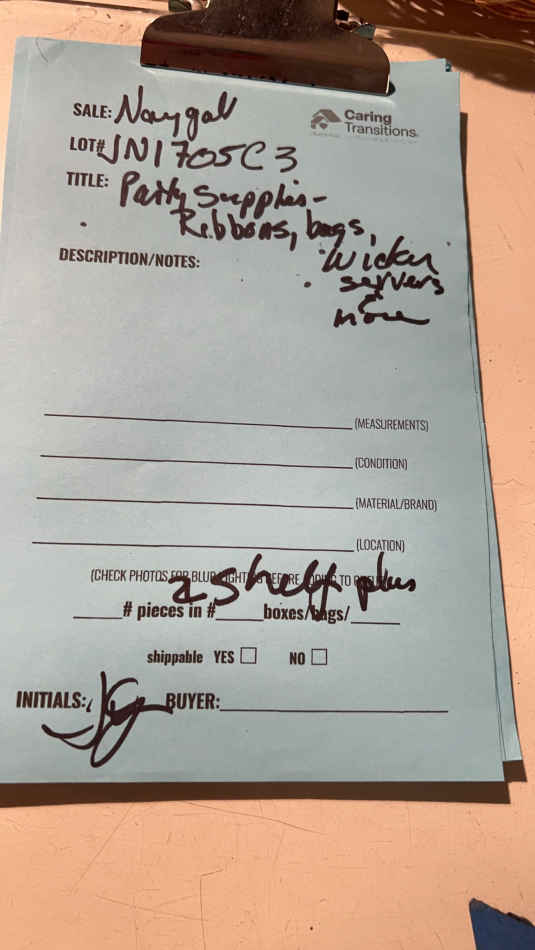 SALE: Naugall
Caring
Transitions
LOT# JN1705C3
TITLE: Party Supplies-
Ribbons, bags,
Wicker
DESCRIPTION/NOTES:
servers
&
more
(MEASUREMENTS)
(CONDITION)
(MATERIAL/BRAND)
(LOCATION)
(CHECK PHOTOS FOR BEFORE TO
2 Shelf plus
# pieces in # boxes/bags/
shippable YES NO
INITIALS: BUYER: